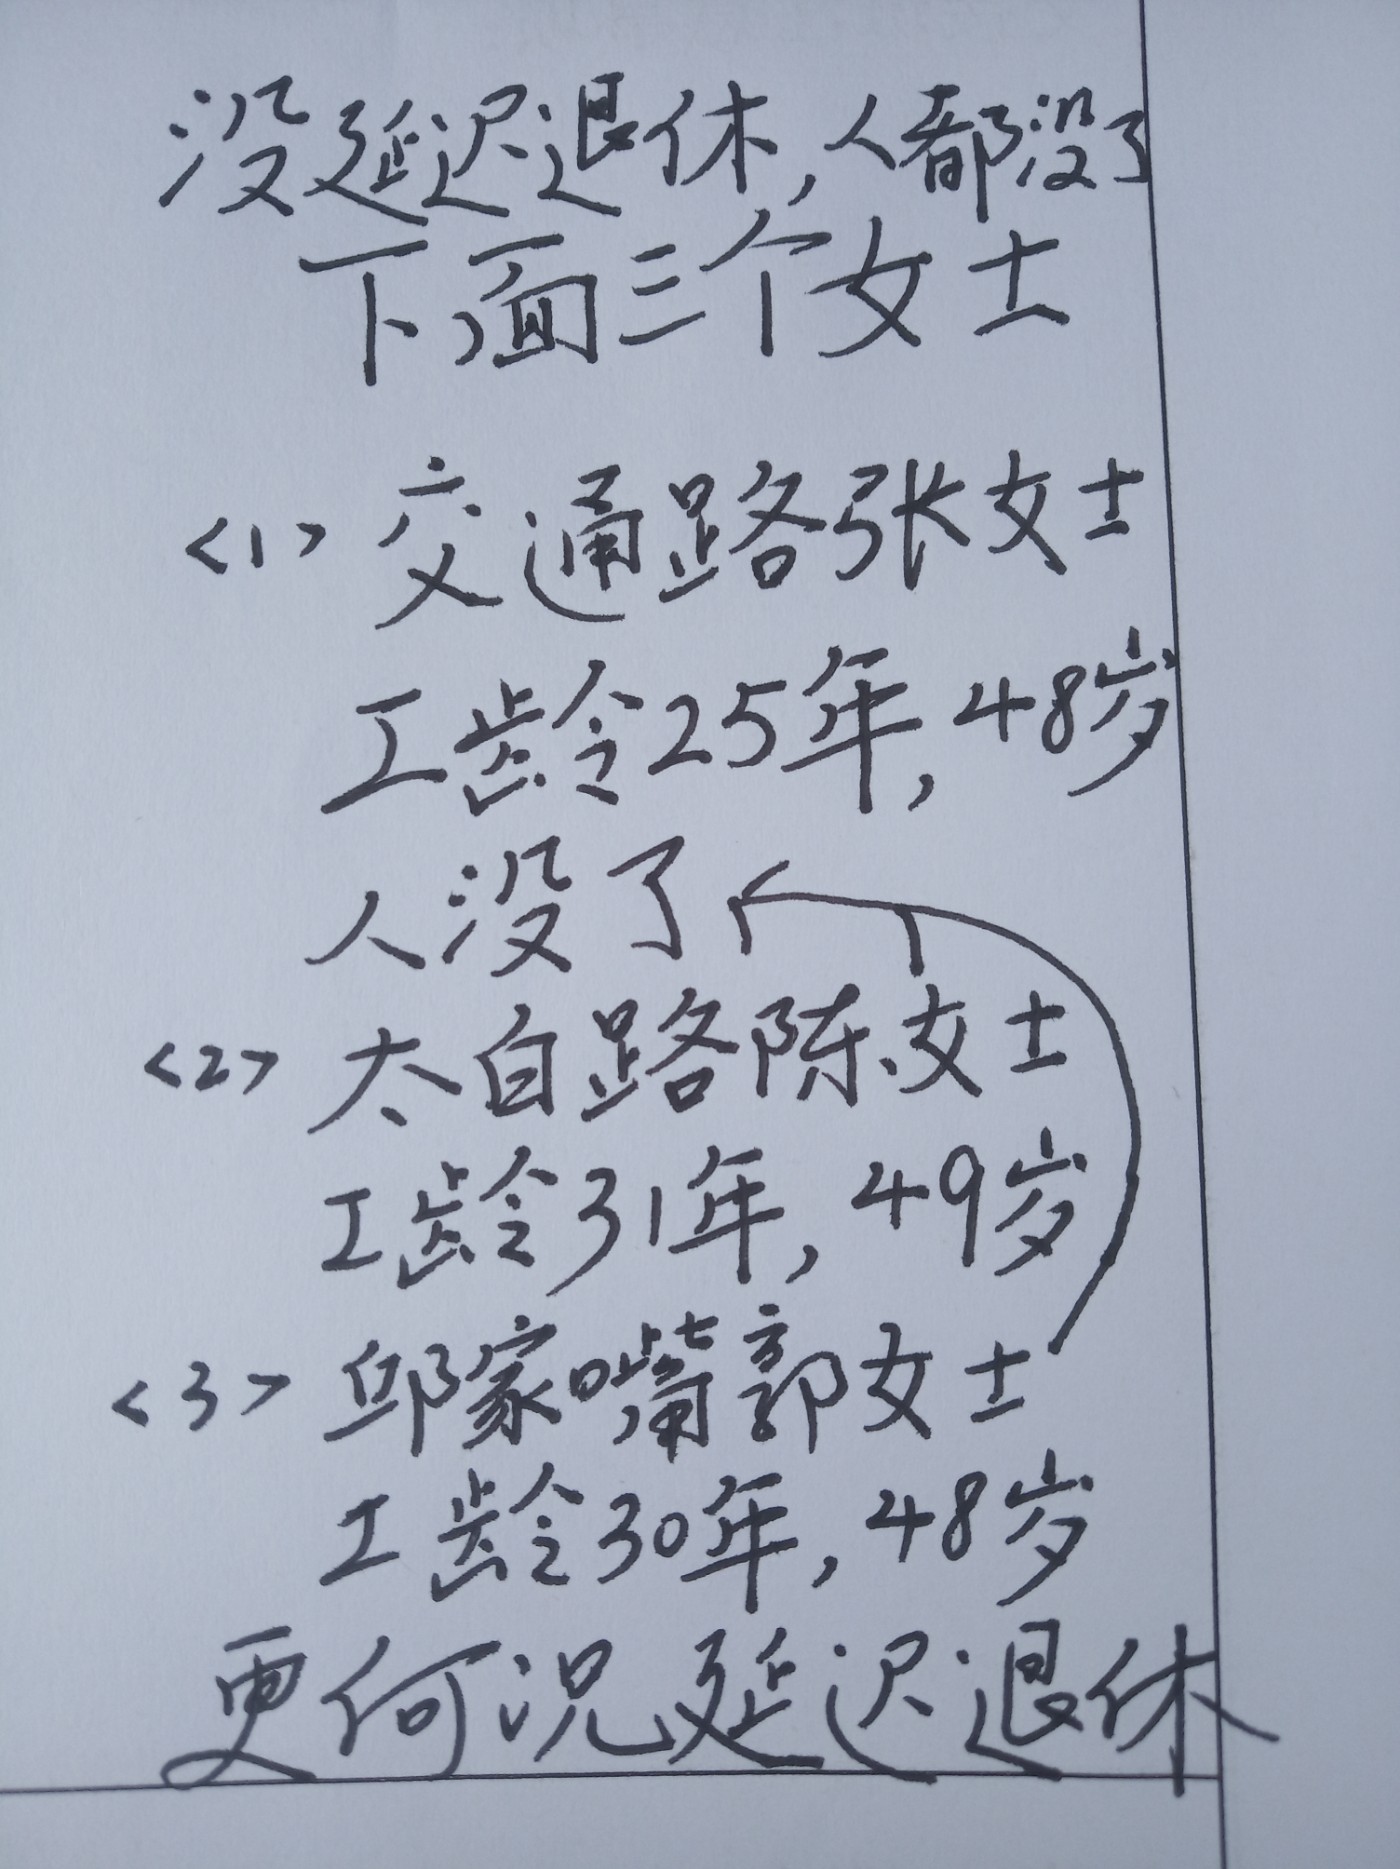 没延迟退休,人都没了
下面三个女士
<1> 交通路张女士
工龄25年,48岁
人没了
<2> 太白路陈女士
工龄31年,49岁
<3> 邱家嘴郭女士
工龄30年,48岁
更何况延迟退休